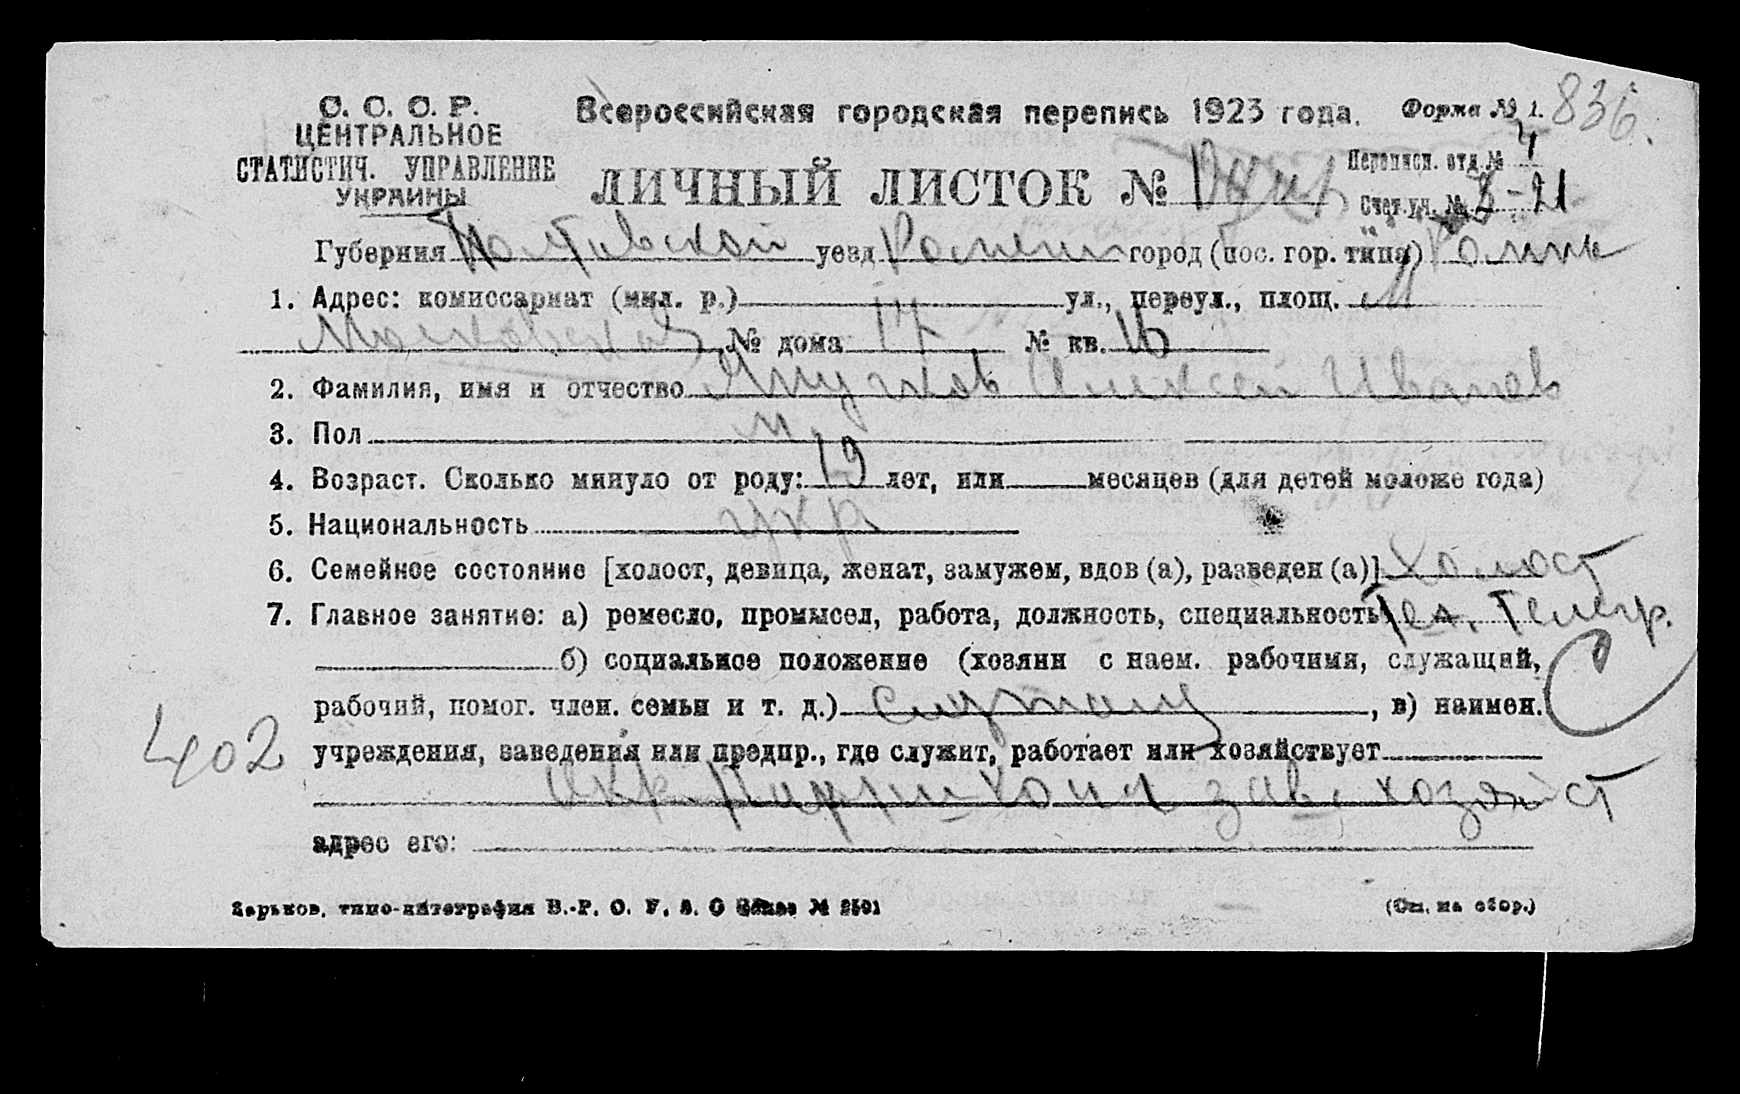 С. С. С. Р.
ЦЕНТРАЛЬНОЕ
СТАТИСТИЧ. УПРАВЛЕНИЕ
УКРАИНЫ
Всероссийская городская перепись 1923 года. Форма № 1. 836.
ЛИЧНЫЙ ЛИСТОК №
Переписн. отд. № 4
Счет. уч. № 3-21
Губерния Полтавской уезд Роменск город (пос. гор. типа) Ромны
1. Адрес: комиссариат (мил. р.) ул., переул., площ.
Московская № дома 17 № кв. 16
2. Фамилия, имя и отчество Алексей Иванов
3. Пол м.
4. Возраст. Сколько минуло от роду: 19 лет, или месяцев (для детей моложе года)
5. Национальность укр
6. Семейное состояние [холост, девица, женат, замужем, вдов (а), разведен (а)] холост
7. Главное занятие: а) ремесло, промысел, работа, должность, специальность Тел. Телегр.
б) социальное положение (хозяин с наем. рабочими, служащий,
рабочий, помог. член. семьи и т. д.) служащ, в) наимен.
402
учреждения, заведения или предпр., где служит, работает или хозяйствует
зав. хозяйст
адрес его:
Харьков, типо-литография В.-Р. О. У. З. С Заказ № 2501
(См. на обор.)